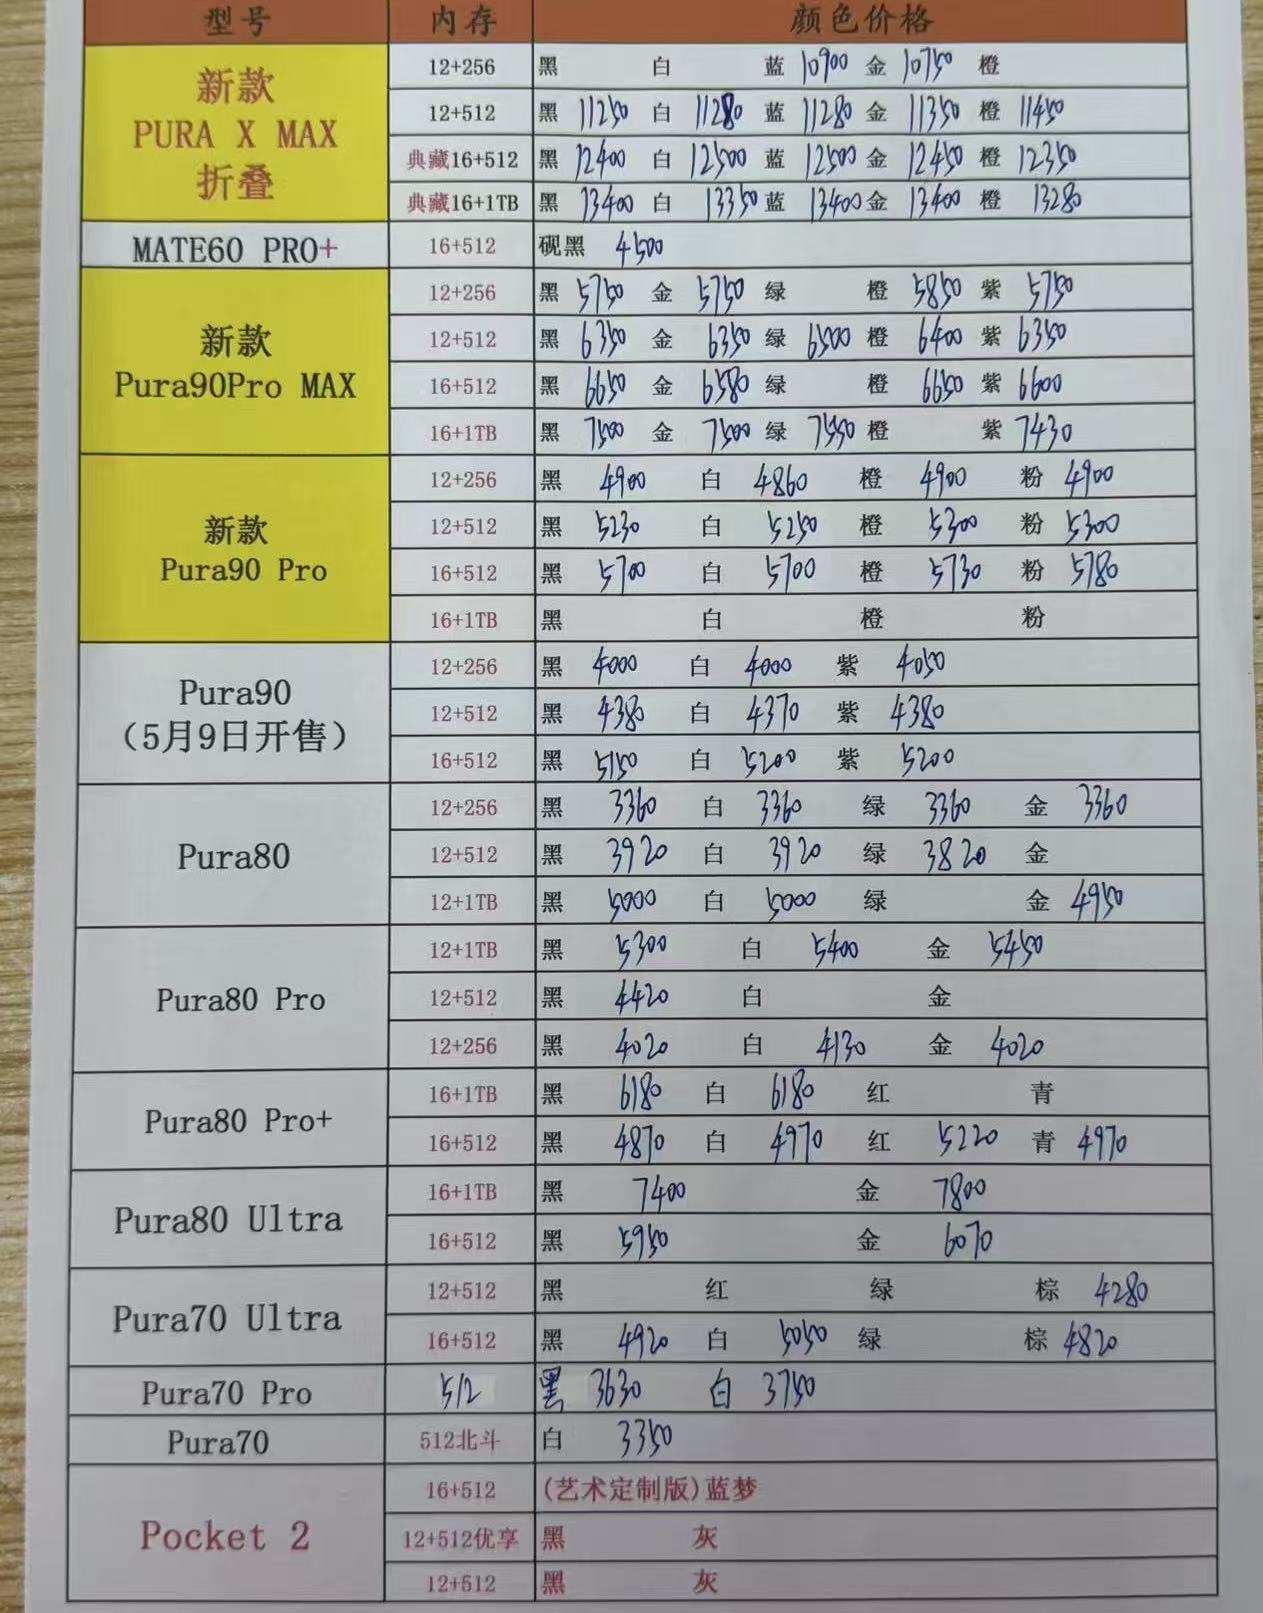 型号 内存 颜色价格
新款 PURA X MAX 折叠
12+256 黑 白 蓝 10900 金 10750 橙
12+512 黑 11250 白 11280 蓝 11280 金 11350 橙 11450
典藏16+512 黑 12400 白 12500 蓝 12500 金 12450 橙 12350
典藏16+1TB 黑 13400 白 13350 蓝 13400 金 13400 橙 13280
MATE60 PRO+ 16+512 砚黑 4500
新款 Pura90Pro MAX
12+256 黑 5750 金 5750 绿 橙 5850 紫 5750
12+512 黑 6350 金 6350 绿 6500 橙 6400 紫 6350
16+512 黑 6650 金 6580 绿 橙 6650 紫 6600
16+1TB 黑 7500 金 7500 绿 7550 橙 紫 7430
新款 Pura90 Pro
12+256 黑 4900 白 4860 橙 4900 粉 4900
12+512 黑 5230 白 5250 橙 5300 粉 5300
16+512 黑 5700 白 5700 橙 5730 粉 5780
16+1TB 黑 白 橙 粉
Pura90 (5月9日开售)
12+256 黑 4000 白 4000 紫 4050
12+512 黑 4380 白 4370 紫 4380
16+512 黑 5150 白 5200 紫 5200
Pura80
12+256 黑 3360 白 3360 绿 3360 金 3360
12+512 黑 3920 白 3920 绿 3820 金
12+1TB 黑 5000 白 5000 绿 金 4950
Pura80 Pro
12+1TB 黑 5300 白 5400 金 5450
12+512 黑 4420 白 金
12+256 黑 4020 白 4130 金 4020
Pura80 Pro+
16+1TB 黑 6180 白 6180 红 青
16+512 黑 4870 白 4970 红 5220 青 4970
Pura80 Ultra
16+1TB 黑 7400 金 7800
16+512 黑 5950 金 6070
Pura70 Ultra
12+512 黑 红 绿 棕 4280
16+512 黑 4920 白 5050 绿 棕 4820
Pura70 Pro 512 黑 3630 白 3750
Pura70 512北斗 白 3350
Pocket 2
16+512 (艺术定制版)蓝梦
12+512优享 黑 灰
12+512 黑 灰